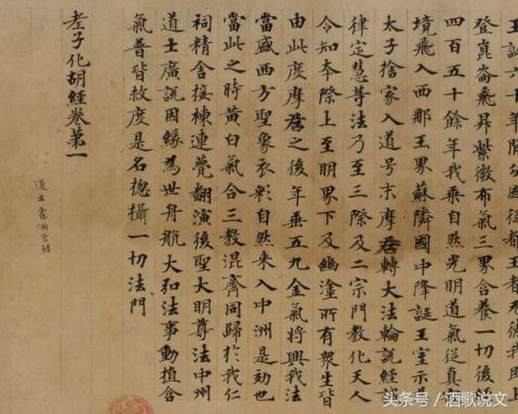 登崑崙飛昇紫微布氣三界含養一切後
四百五十餘年我乘自然光明道氣從真
境飛入西那玉界蘇隣國中降誕王室示為
太子捨家入道号末摩尼轉大法輪說經誡
律定慧等法乃至三際及二宗門教化天人
令知本際上至明界下及幽塗所有衆生皆
由此度摩尼之後年垂五九金氣將興我法
當盛西方聖象衣彩自然來入中洲是効也
當此之時黃白氣合三教混齊同歸於我仁
祠精舍接棟連甍翻演後聖大明尊法中州
道士廣說因緣為世舟航大弘法事動植含
氣普皆救度是名惣攝一切法門
老子化胡經卷第一
道士索洞玄經
头条号 / 酒歌说文